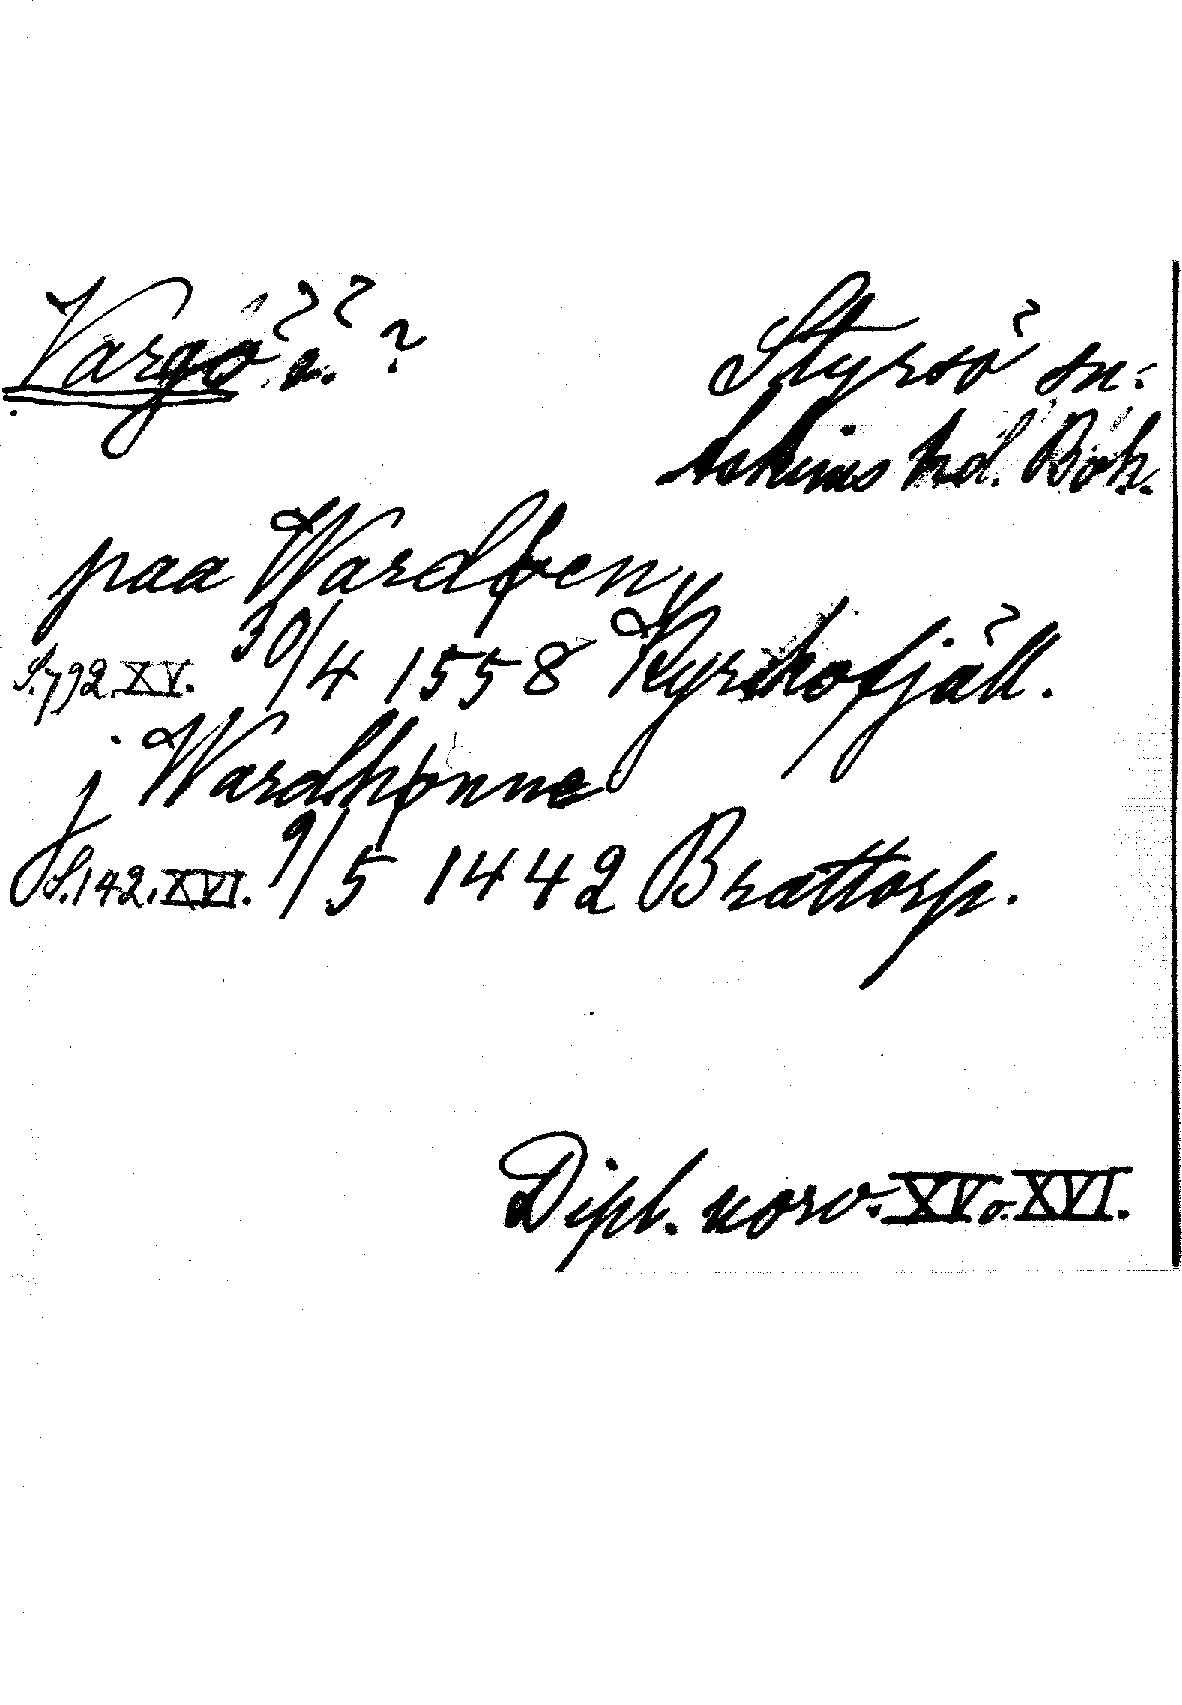 Vargö ö. ?
Styrsö sn.
Askims hd. Boh.
paa Wardøen
S. 792 XV. 30/4 1558 Kyrkofjäll.
j Wardhønne
S. 142. XVI. 9/5 1442 Brattorp.
Dipl. norv. XV o. XVI.